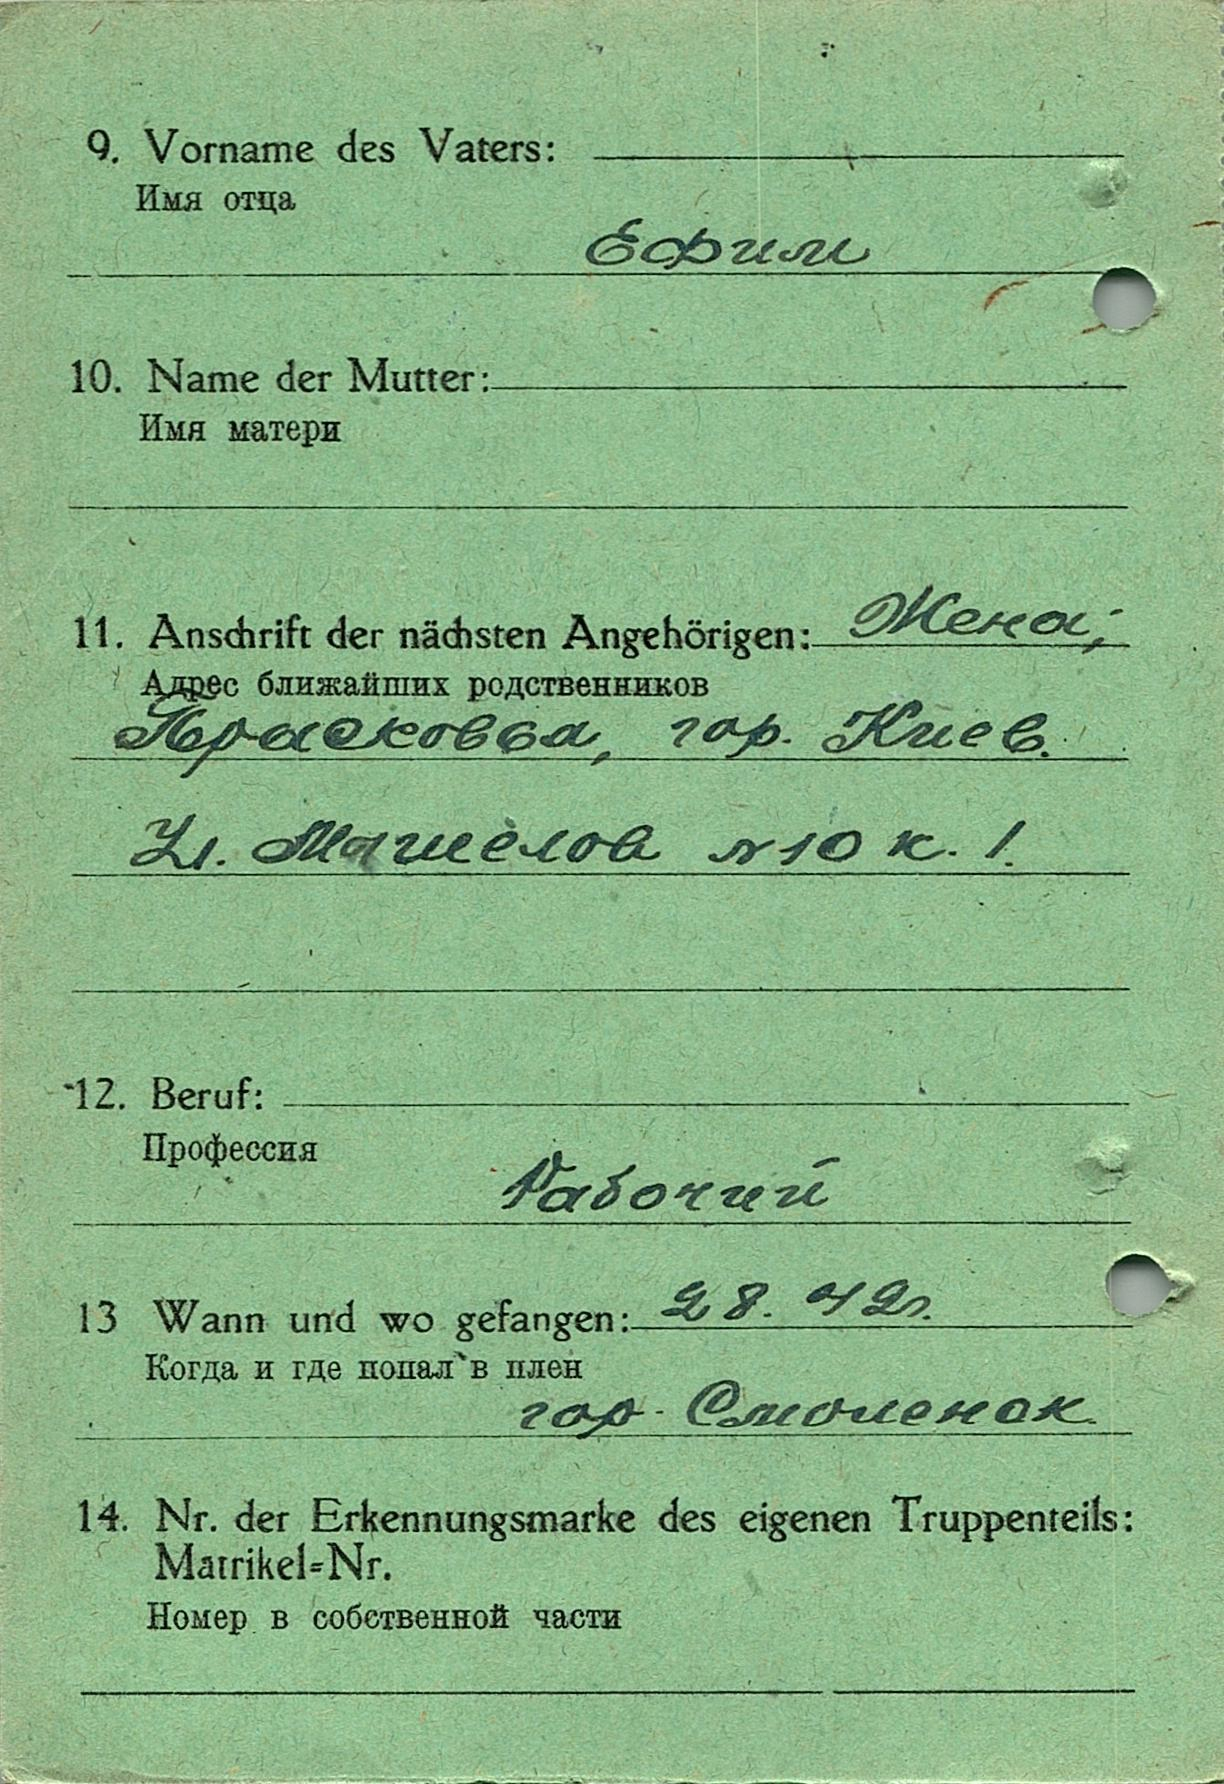 9. Vorname des Vaters:
Имя отца
Ефим
10. Name der Mutter:
Имя матери
11. Anschrift der nächsten Angehörigen: Жена;
Адрес ближайших родственников
Прасковва, гор. Киев.
Ул. Машелов №10 к. 1.
12. Beruf:
Профессия
Рабочий
13 Wann und wo gefangen: 28. 42г.
Когда и где попал в плен
гор. Смоленск.
14. Nr. der Erkennungsmarke des eigenen Truppenteils:
Matrikel=Nr.
Номер в собственной части